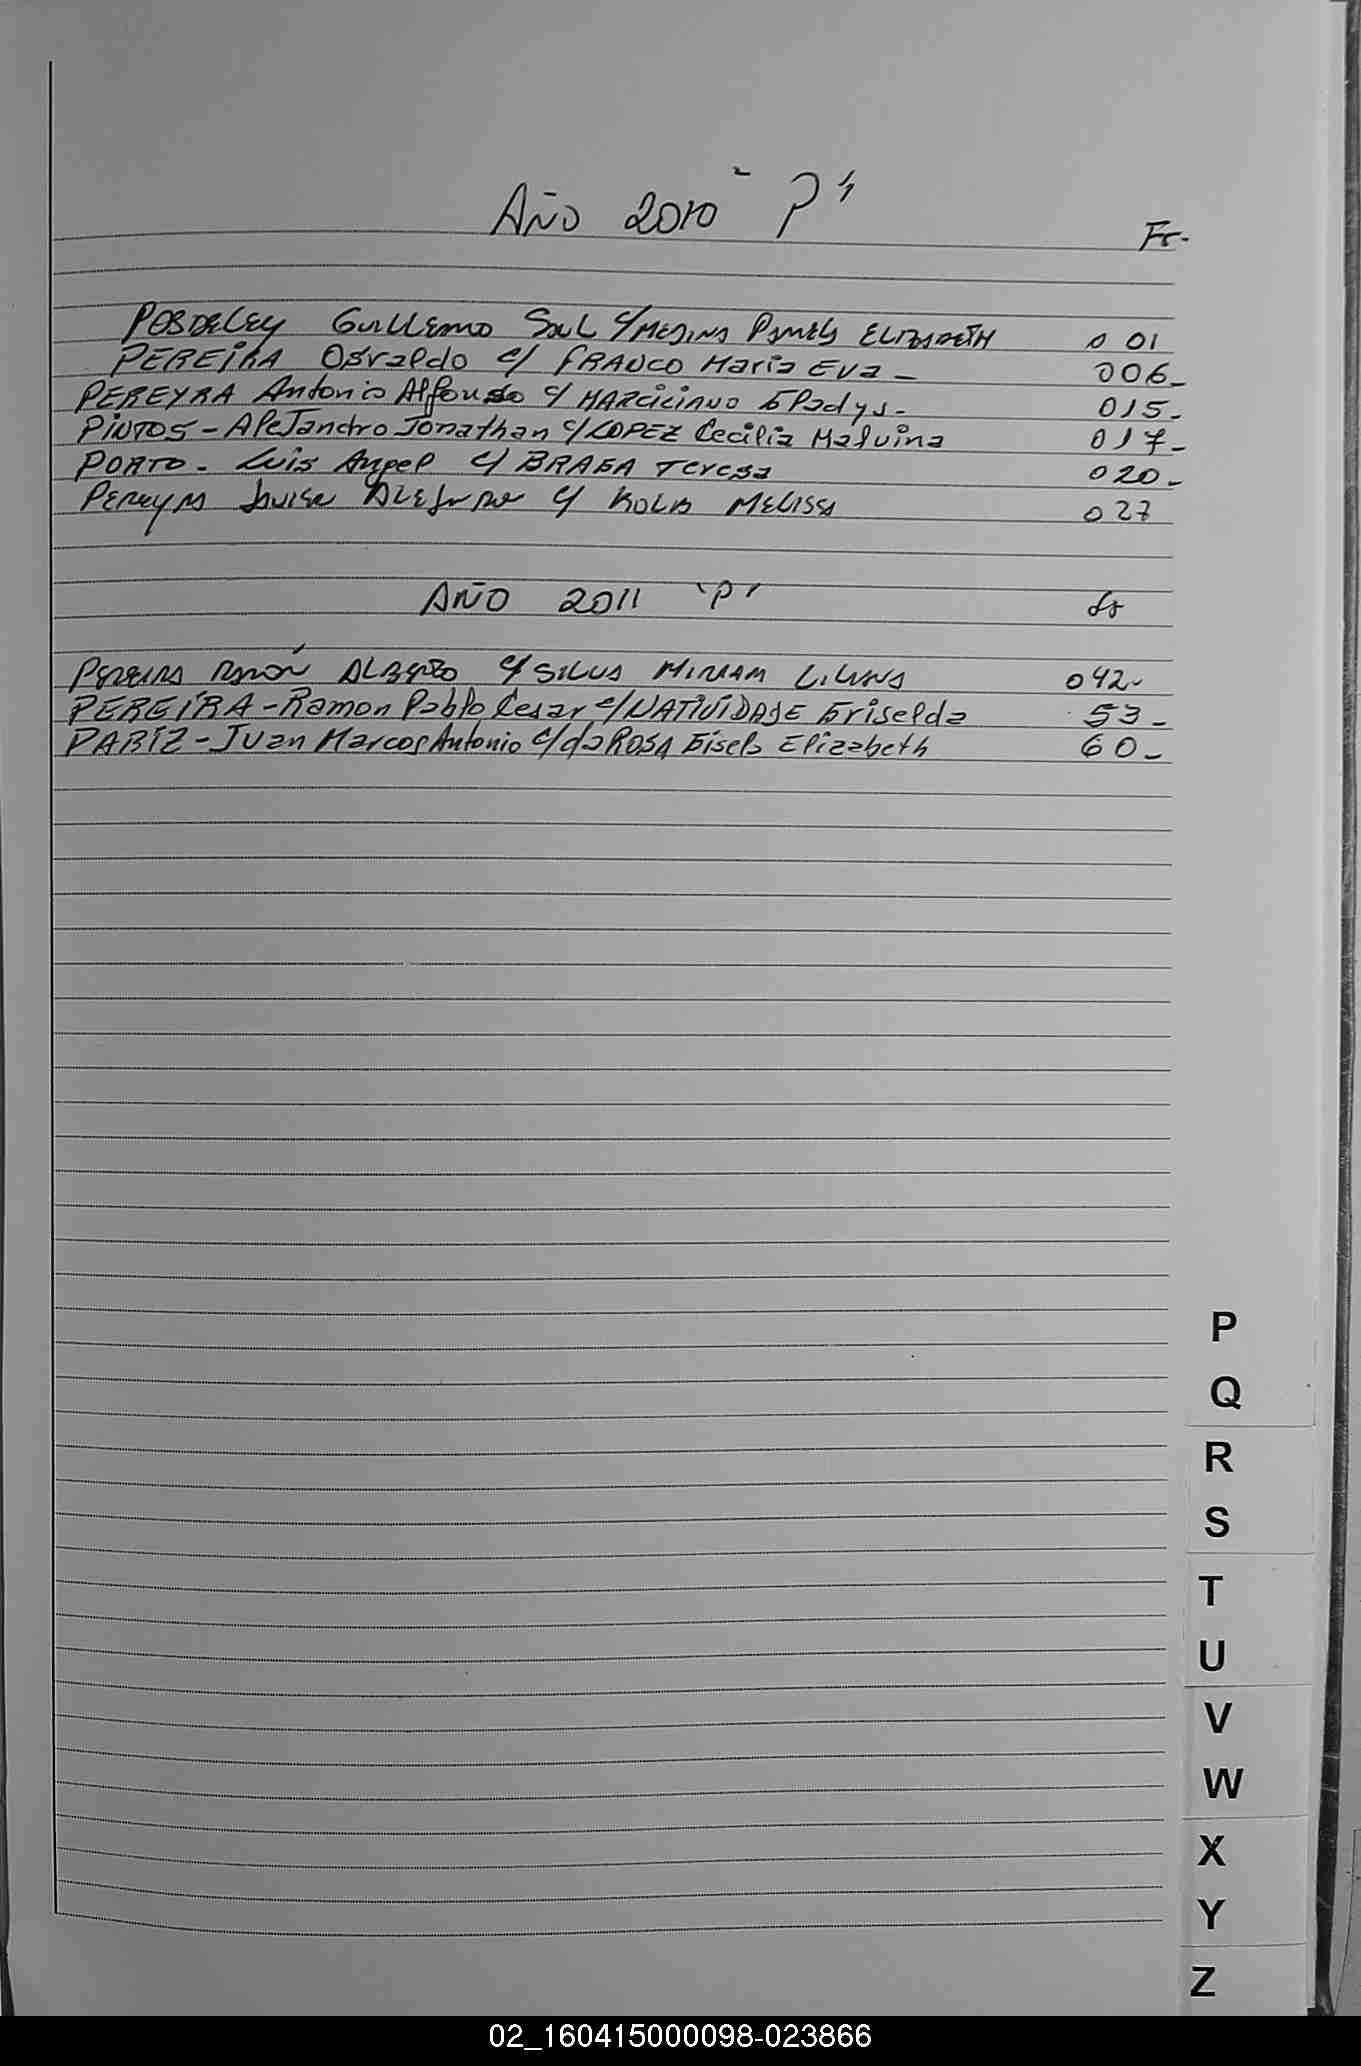 AÑO 2010 "P"
Fs.
POSDELEY Guillermo Saul c/ MEDINA Pamela ELIZABETH 001
PEREIRA Osvaldo c/ FRANCO Maria Eva - 006-
PEREYRA Antonio Alfonso c/ Gladys - 015-
PINTOS - Alejandro Jonathan c/ LOPEZ Cecilia Malvina 017-
PORTO - Luis Angel c/ BRAGA Teresa 020-
PEREYRA c/ MELISSA 027
AÑO 2011 "P" fs
PEREIRA Ramón ALBERTO c/ SILVA MIRIAM LILIANA 042-
PEREIRA - Ramon Pablo Cesar c/ NATIVIDADE Griselda 53-
PARIZ - Juan Marcos Antonio c/ da ROSA Gisela Elizabeth 60-
P
Q
R
S
T
U
V
W
X
Y
Z
02_160415000098-023866